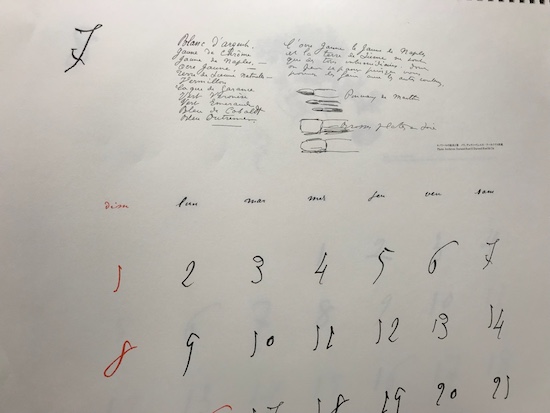 7
Blanc d'argent.
Jaune de Chrôme
Jaune de Naples,
Ocre Jaune
Terre de Sienne naturelle
Vermillon
Laque de Garance
Vert Véronèse
Vert Emeraude
Bleu de Cobalt
Bleu Outremer
L'ocre Jaune le Jaune de Naples
et la terre de Sienne ne sont
que des tons intermédiaires dont
on peut se
les autres couleurs
Pinceau de Martre
Brosse plate en Soie
dim lun mar mer jeu ven sam
1 2 3 4 5 6 7
8 9 10 11 12 13 14
17 18 19 20 21